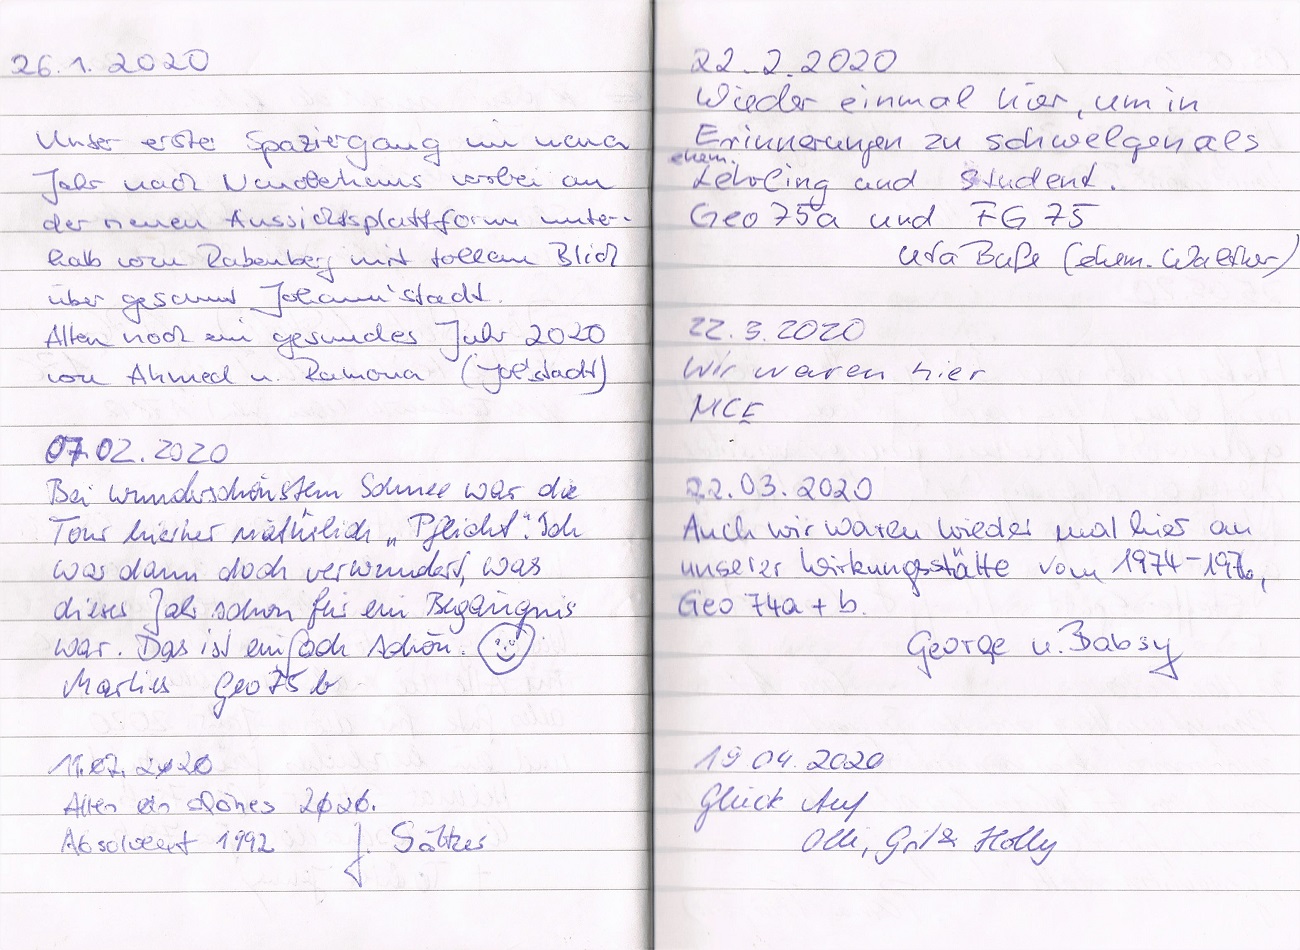 26.1.2020
Unser erster Spaziergang im neuen
Jahr nach vorbei an
der neuen Aussichtsplattform unter-
halb vom Rabenberg mit tollem Blick
über gesamt Johann'stadt.
Allen noch ein gesundes Jahr 2020
von Ahmed u. Ramona (Jo'stadt)
07.02.2020
Bei wunderschönstem Schnee war die
Tour hierher natürlich „Pflicht“. Ich
war dann doch verwundert, was
dieses Jahr schon für ein Begängnis
war. Das ist einfach schön.
Marlies Geo 75 b
11.02.2020
Allen ein schönes 2020.
Absolvent 1992 J.
22.2.2020
Wieder einmal hier, um in
Erinnerungen zu schwelgen als
ehem.
Lehrling und Student.
Geo 75a und FG 75
Uta Buße (ehem. Walther)
22.3.2020
Wir waren hier
MCE
22.03.2020
Auch wir waren wieder mal hier an
unserer Wirkungsstätte vom 1974-1976,
Geo 74a + b.
George u. Babsy
19.04.2020
Glück Auf
Olli, & Holly